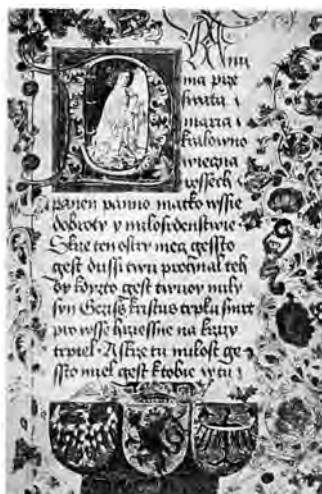 Panno
ma prze
swata i
maria i
kralowno
wieczna
wssech
panen panno matko wssie
dobroty y milosrdenstwie
Skrze ten ostry mecz gessto
gest dussi twu proczial teh
dy kdyzto gest twuoy mily
syn Gezissi kristus trpku smrt
pro wsse hrziessne na krzizy
trpiel · A skrze tu milost ge
ssto miel gest k tobie w tu